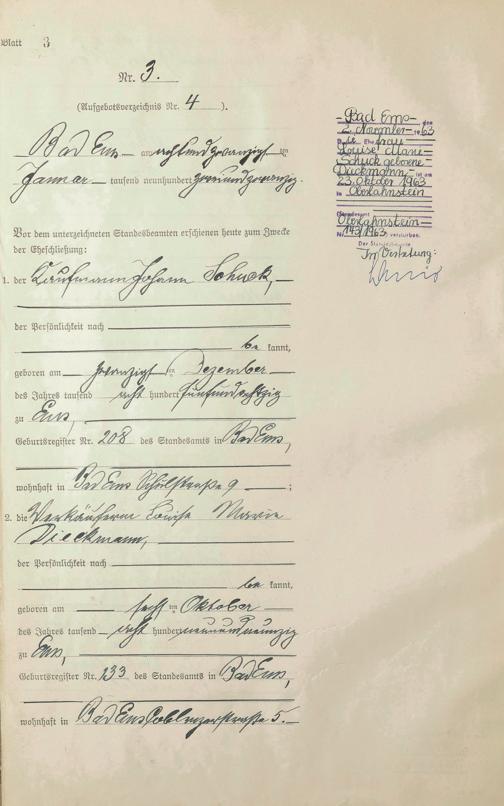 Blatt 3
Nr. 3.
(Aufgebotsverzeichnis Nr. 4 ).
Bad Ems am achtundzwanzigsten
Januar tausend neunhundert zweiundzwanzig.
Vor dem unterzeichneten Standesbeamten erschienen heute zum Zwecke
der Eheschließung:
1. der Kaufmann Johann Schuck,
der Persönlichkeit nach
be kannt,
geboren am zwanzigsten Dezember
des Jahres tausend acht hundert fünfundachtzig
zu Ems,
Geburtsregister Nr. 208 des Standesamts in Bad Ems,
wohnhaft in Bad Ems Schulstraße 9 ;
2. die Verkäuferin Louise Marie
Dieckmann,
der Persönlichkeit nach
be kannt,
geboren am sechsten Oktober
des Jahres tausend acht hundert neunundneunzig
zu Ems,
Geburtsregister Nr. 133 des Standesamts in Bad Ems,
wohnhaft in Bad Ems Coblenzerstraße 5.
Bad Ems den
2. November 1963
Die Ehefrau
Louise Marie
Schuck geborene
Dieckmann ist am
23. Oktober 1963
in Oberlahnstein
Standesamt
Oberlahnstein
Nr. 143/1963 verstorben.
Der Standesbeamte
In Vertretung: